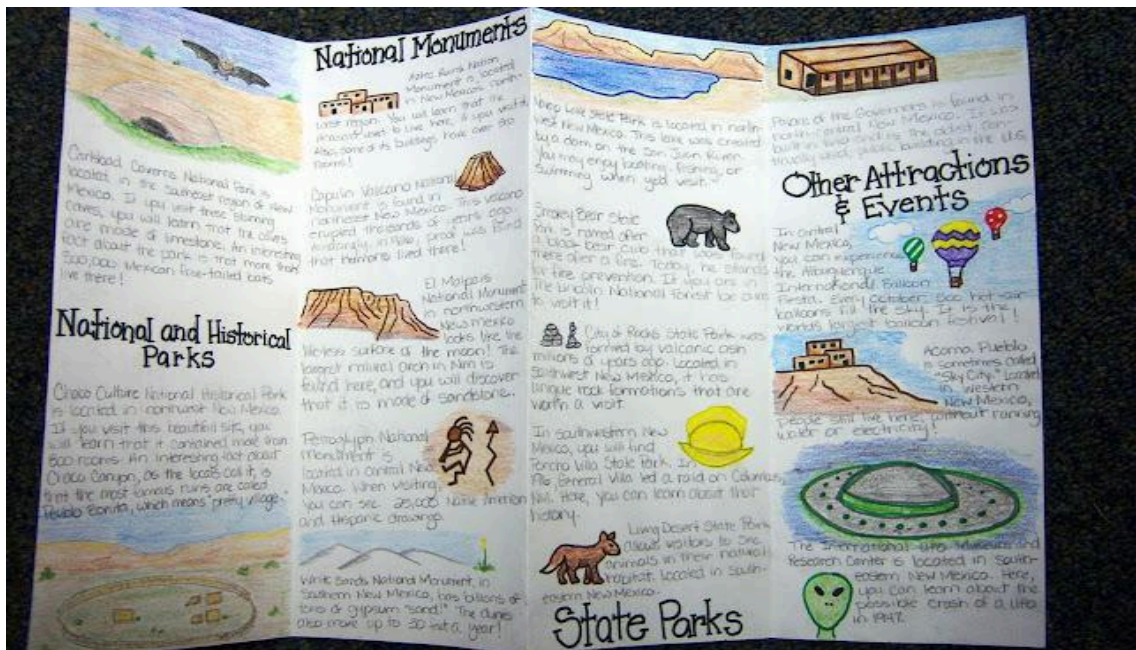 Carlsbad Caverns National Park is
located in the southeast region of New
Mexico. If you visit these stunning
caves, you will learn that the caves
are made of limestone. An interesting
fact about the park is that more than
300,000 Mexican free-tailed bats
live there!
National and Historical
Parks
Chaco Culture National Historical Park
is located in northwest New Mexico.
If you visit this beautiful site, you
will learn that it contained more than
800 rooms. An interesting fact about
Chaco Canyon, as the locals call it, is
that the most famous ruins are called
Pueblo Bonita, which means "pretty village."
National Monuments
Aztec Ruins Nation
Monument is located
in New Mexico's north-
west region. You will learn that the
used to live here, if you visit it.
Also, some of its buildings have over
rooms!
Capulin Volcano National
Monument is found in
northeast New Mexico. This volcano
erupted thousands of years ago.
in proof was found
that humans lived there!
El Malpais
National Monument
in northwestern
New Mexico
looks like the
lifeless surface of the moon! The
largest natural arch in NM is
found here, and you will discover
that it is made of sandstone.
Petroglyph National
Monument is
located in central New
Mexico. When visiting,
you can see 25,000 Native American
and Hispanic drawings.
White Sands National Monument, in
Southern New Mexico, has billions of
tons of gypsum "sand!" The dunes
also move up to 30 ft a year!
State Park is located in north-
west New Mexico. This lake was created
by a dam on the San Juan River.
You may enjoy boating, fishing, or
swimming when you visit.
Smokey Bear State
Park is named after
a black bear cub that was found
there after a fire. Today, he stands
for fire prevention. If you are in
the Lincoln National Forest be sure
to visit it!
City of Rocks State Park was
formed by volcanic ash
millions of years ago. Located in
Southwest New Mexico, it has
unique rock formations that are
worth a visit.
In southwestern New
Mexico, you will find
Poncho Villa State Park. In
1916, General Villa led a raid on Columbus,
NM. Here, you can learn about their
history.
Living Desert State Park
allows visitors to see
animals in their natural
habitat. Located in South-
eastern New Mexico.
State Parks
Palace of the Governors is found in
north-central New Mexico. It was
built in and is the oldest, con-
tinually used, public building in the U.S.
Other Attractions
& Events
In central
New Mexico,
you can experience
the Albuquerque
International Balloon
Fiesta. Every October, 800 hot-air
balloons fill the sky. It is the
world's largest balloon festival!
Acoma Pueblo
is sometimes called
"Sky City." Located
in Western
New Mexico,
people still live here, without running
water or electricity!
The International UFO Museum and
Research Center is located in South-
eastern New Mexico. Here,
you can learn about the
possible crash of a UFO
in 1947.